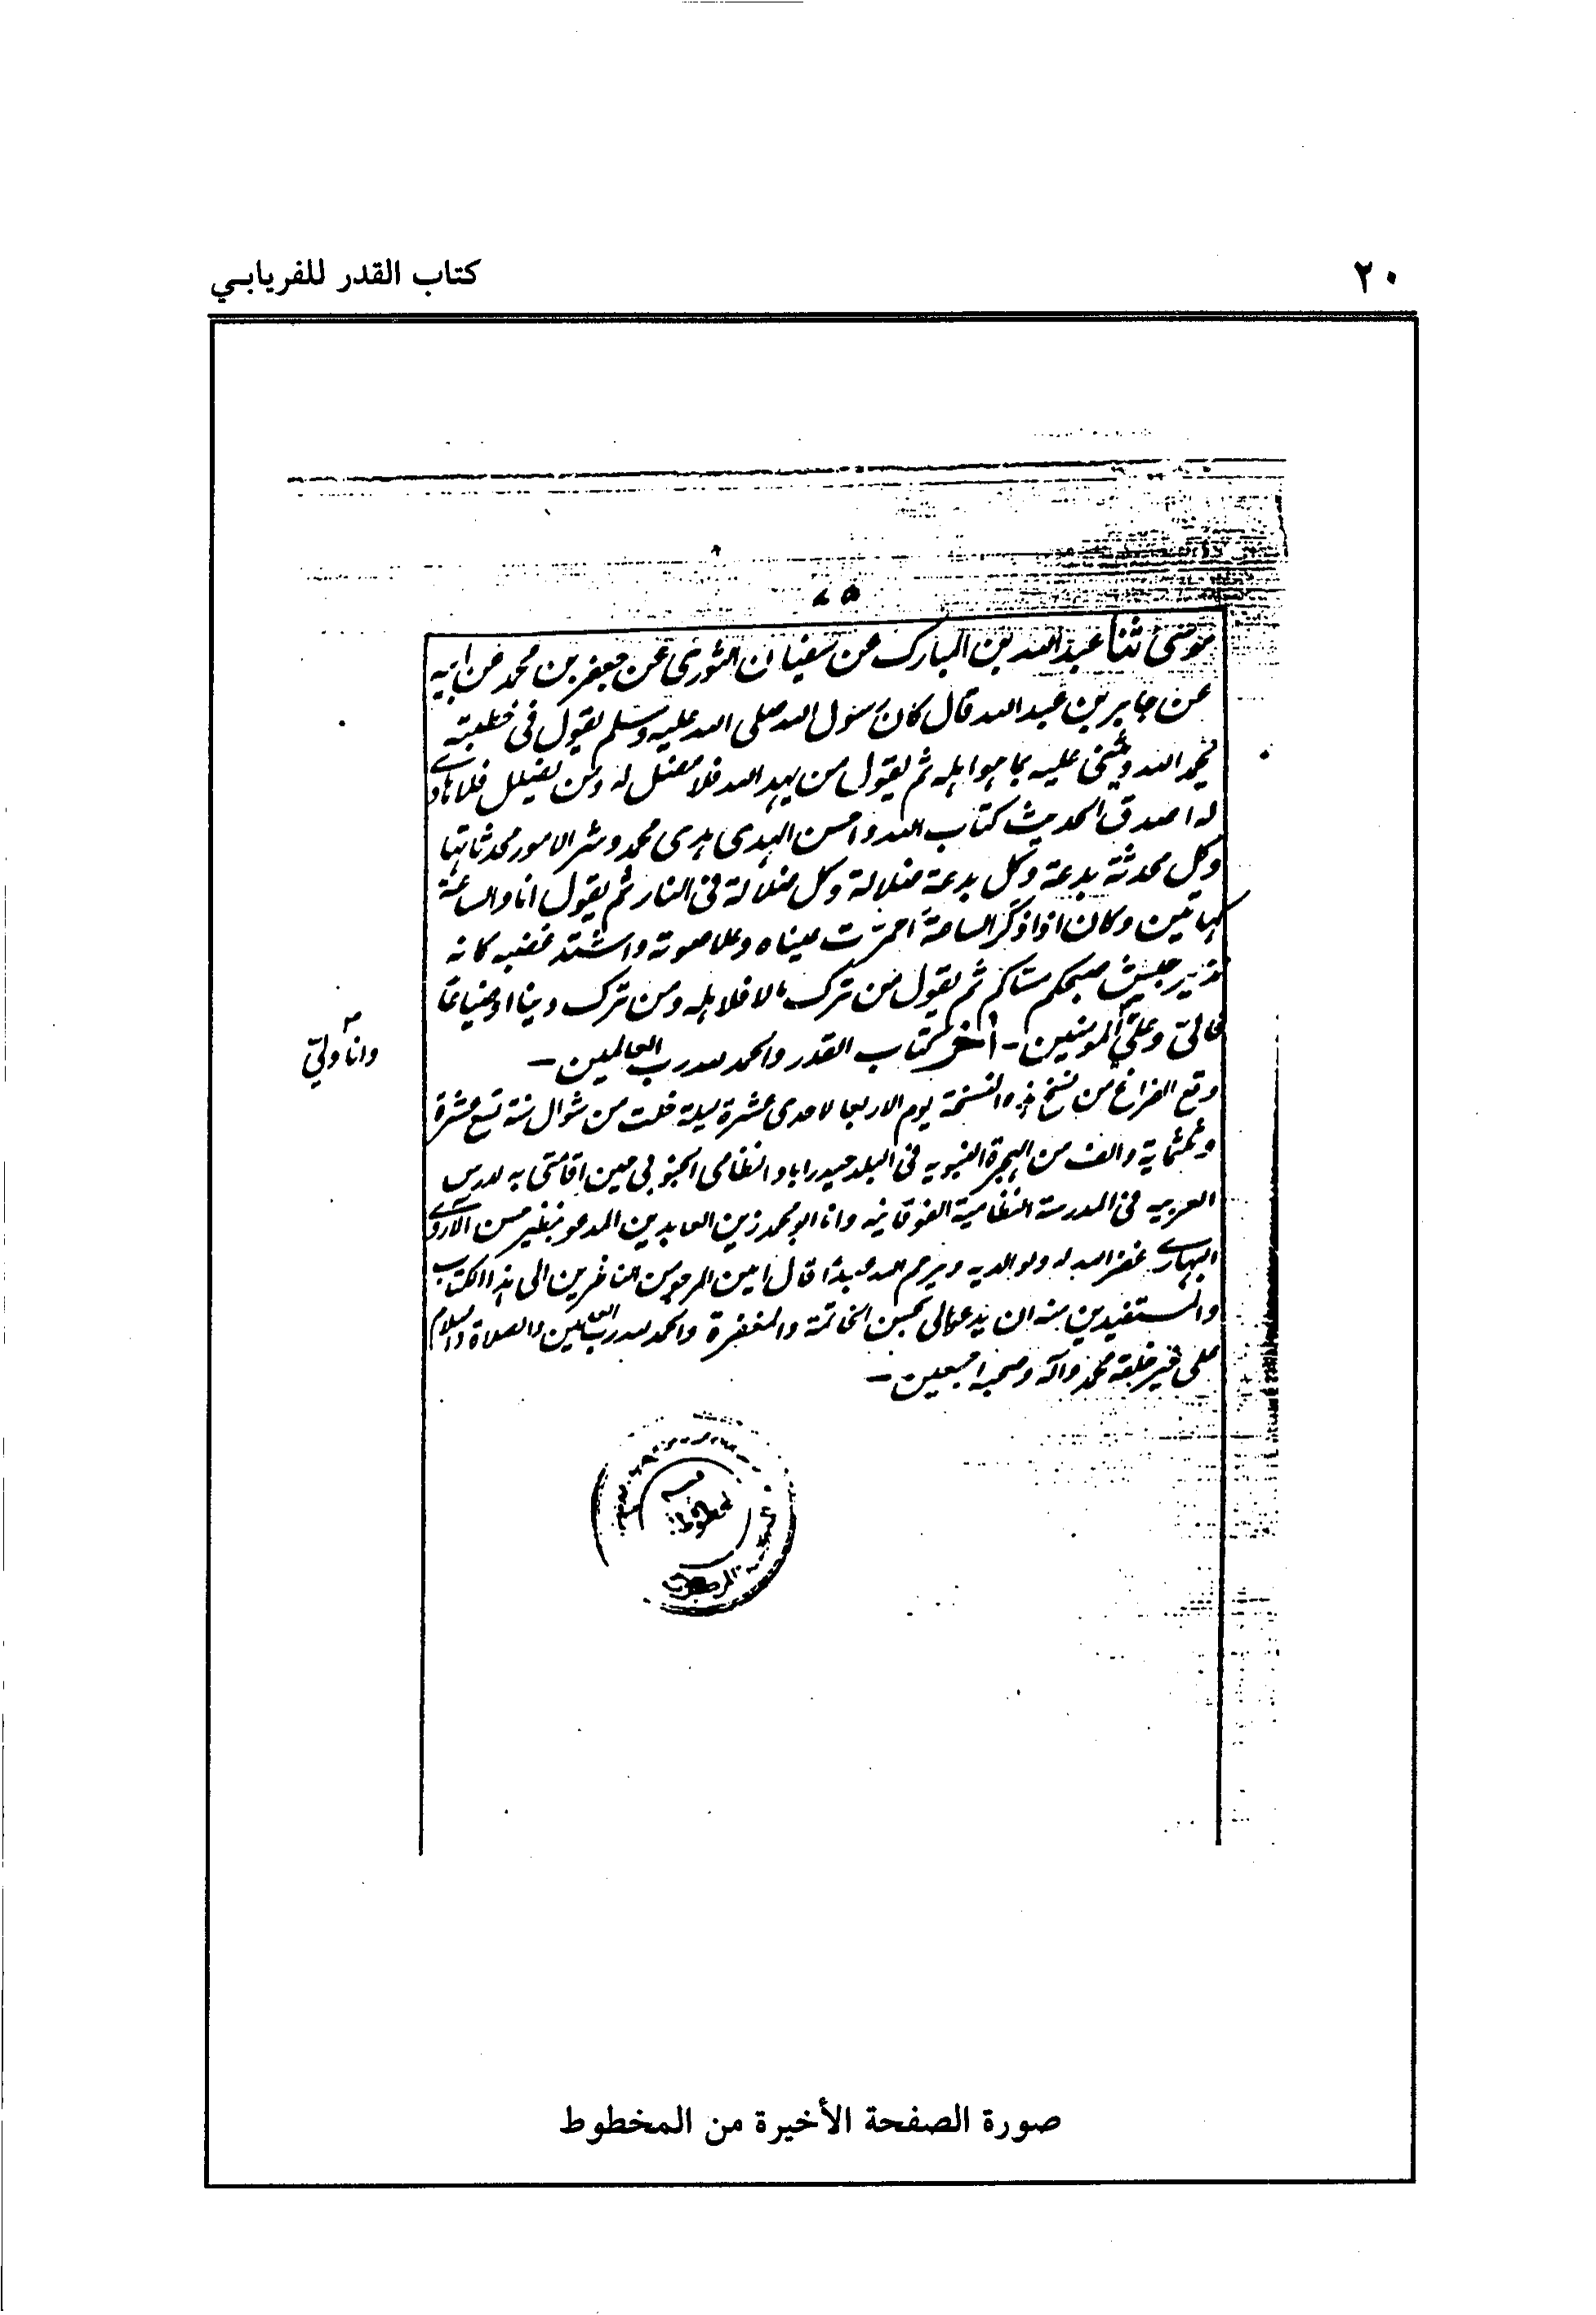 ٢٠
كتاب القدر للفريابي
٧٥
موسى ثنا عبد الله بن المبارك عن سفيان الثورى عن جعفر بن محمد عن ابيه
عن جابر بن عبد الله قال كان رسول الله صلى الله عليه وسلم يقول فى خطبته
نحمد الله ونثنى عليه بما هو اهله ثم يقول من يهد الله فلا مضل له ومن يضلل فلا هادى
له اصدق الحديث كتاب الله واحسن الهدى هدى محمد وشر الامور محدثاتها
وكل محدثة بدعة وكل بدعة ضلالة وكل ضلالة فى النار ثم يقول انا والساعة
كهاتين وكان اذا ذكر الساعة احمرت عيناه وعلا صوته واشتد غضبه كانه
نذير جيش صبحكم مساكم ثم يقول من ترك مالا فلاهله ومن ترك دينا او ضياعا
فالىّ وعلىّ المومنين - آخر كتاب القدر والحمد لله رب العالمين -
وانا ولىّ
وقع الفراغ من نسخ هذه النسخة يوم الاربعا لاحدى عشرة ليلة خلت من شوال سنة تسع عشرة
وثلثماية والف من الهجرة النبويه فى البلد حيدراباد النظامى الجنوبى حين اقامتى به لدرس
العربيه فى المدرسة النظامية الفوقانيه وانا ابو محمد زين العابدين المدعو بنظير حسن الآروى
البهارى غفر الله له ولوالديه ويرحم الله عبدا قال امين المرجو من الناظرين الى هذا الكتاب
والمستفيدين منه ان يدعوا لى بحسن الخاتمة والمغفرة والحمد لله رب العالمين والصلاة والسلام
على خير خلقه محمد وآله وصحبه اجمعين -
صورة الصفحة الأخيرة من المخطوط